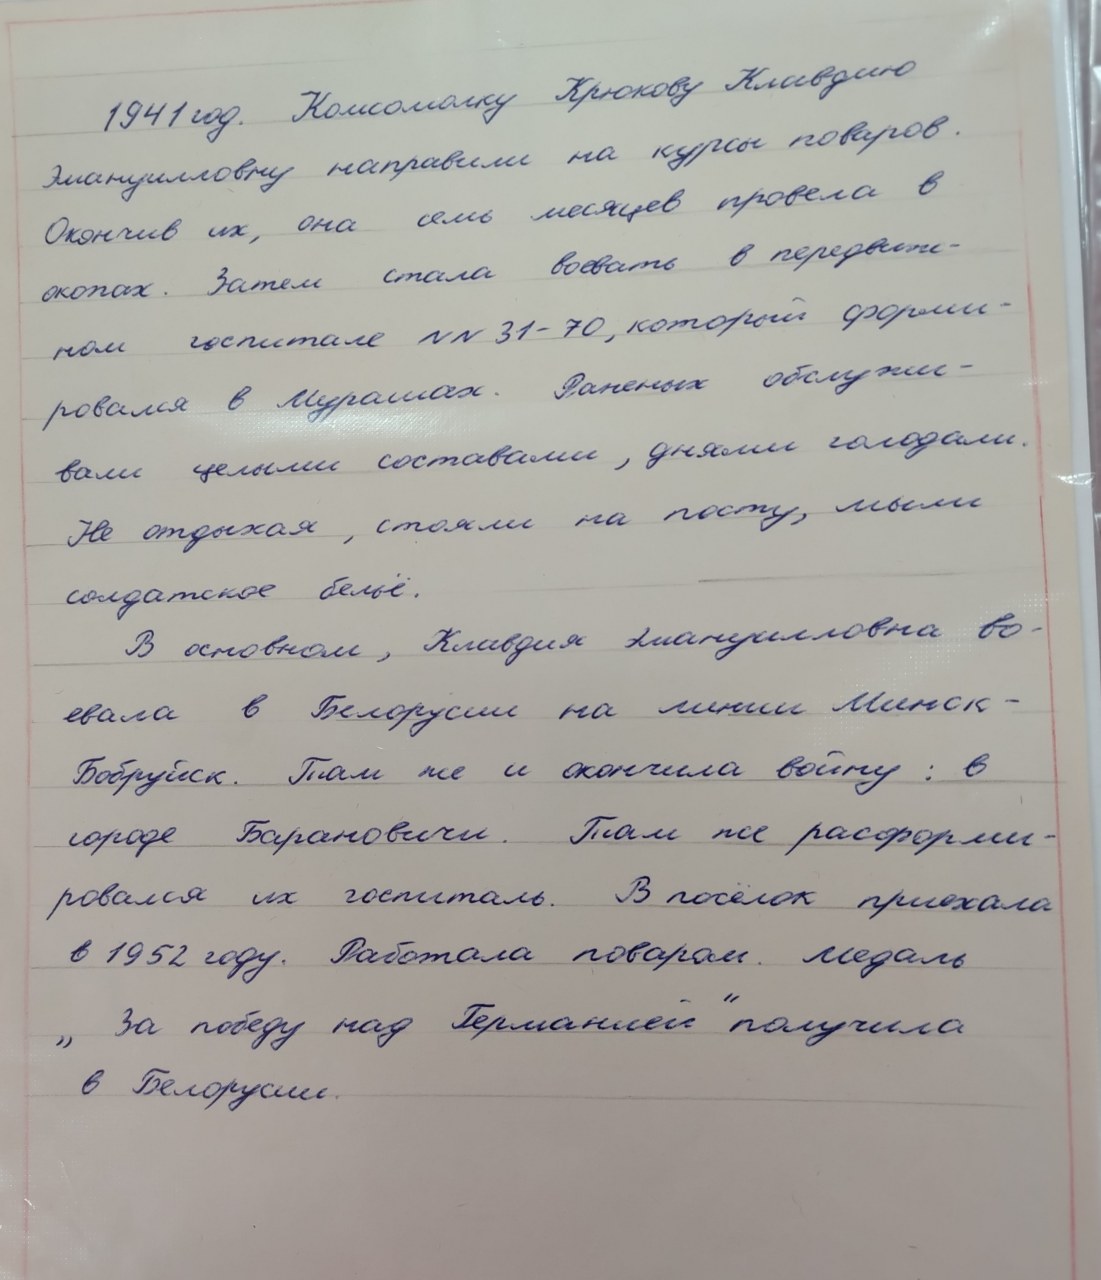 1941 год. Комсомолку Крюкову Клавдию
Эмануилловну направили на курсы поваров.
Окончив их, она семь месяцев провела в
окопах. Затем стала воевать в передвиж-
ном госпитале NN 31-70, который форми-
ровался в Мурашах. Раненых обслужи-
вали целыми составами, днями голодали.
Не отдыхая, стояли на посту, мыли
солдатское бельё.
В основном, Клавдия Эмануилловна во-
евала в Белорусии на линии Минск-
Бобруйск. Там же и окончила войну: в
городе Барановичи. Там же расформи-
ровался их госпиталь. В посёлок приехала
в 1952 году. Работала поваром. Медаль
„За победу над Германией" получила
в Белорусии.